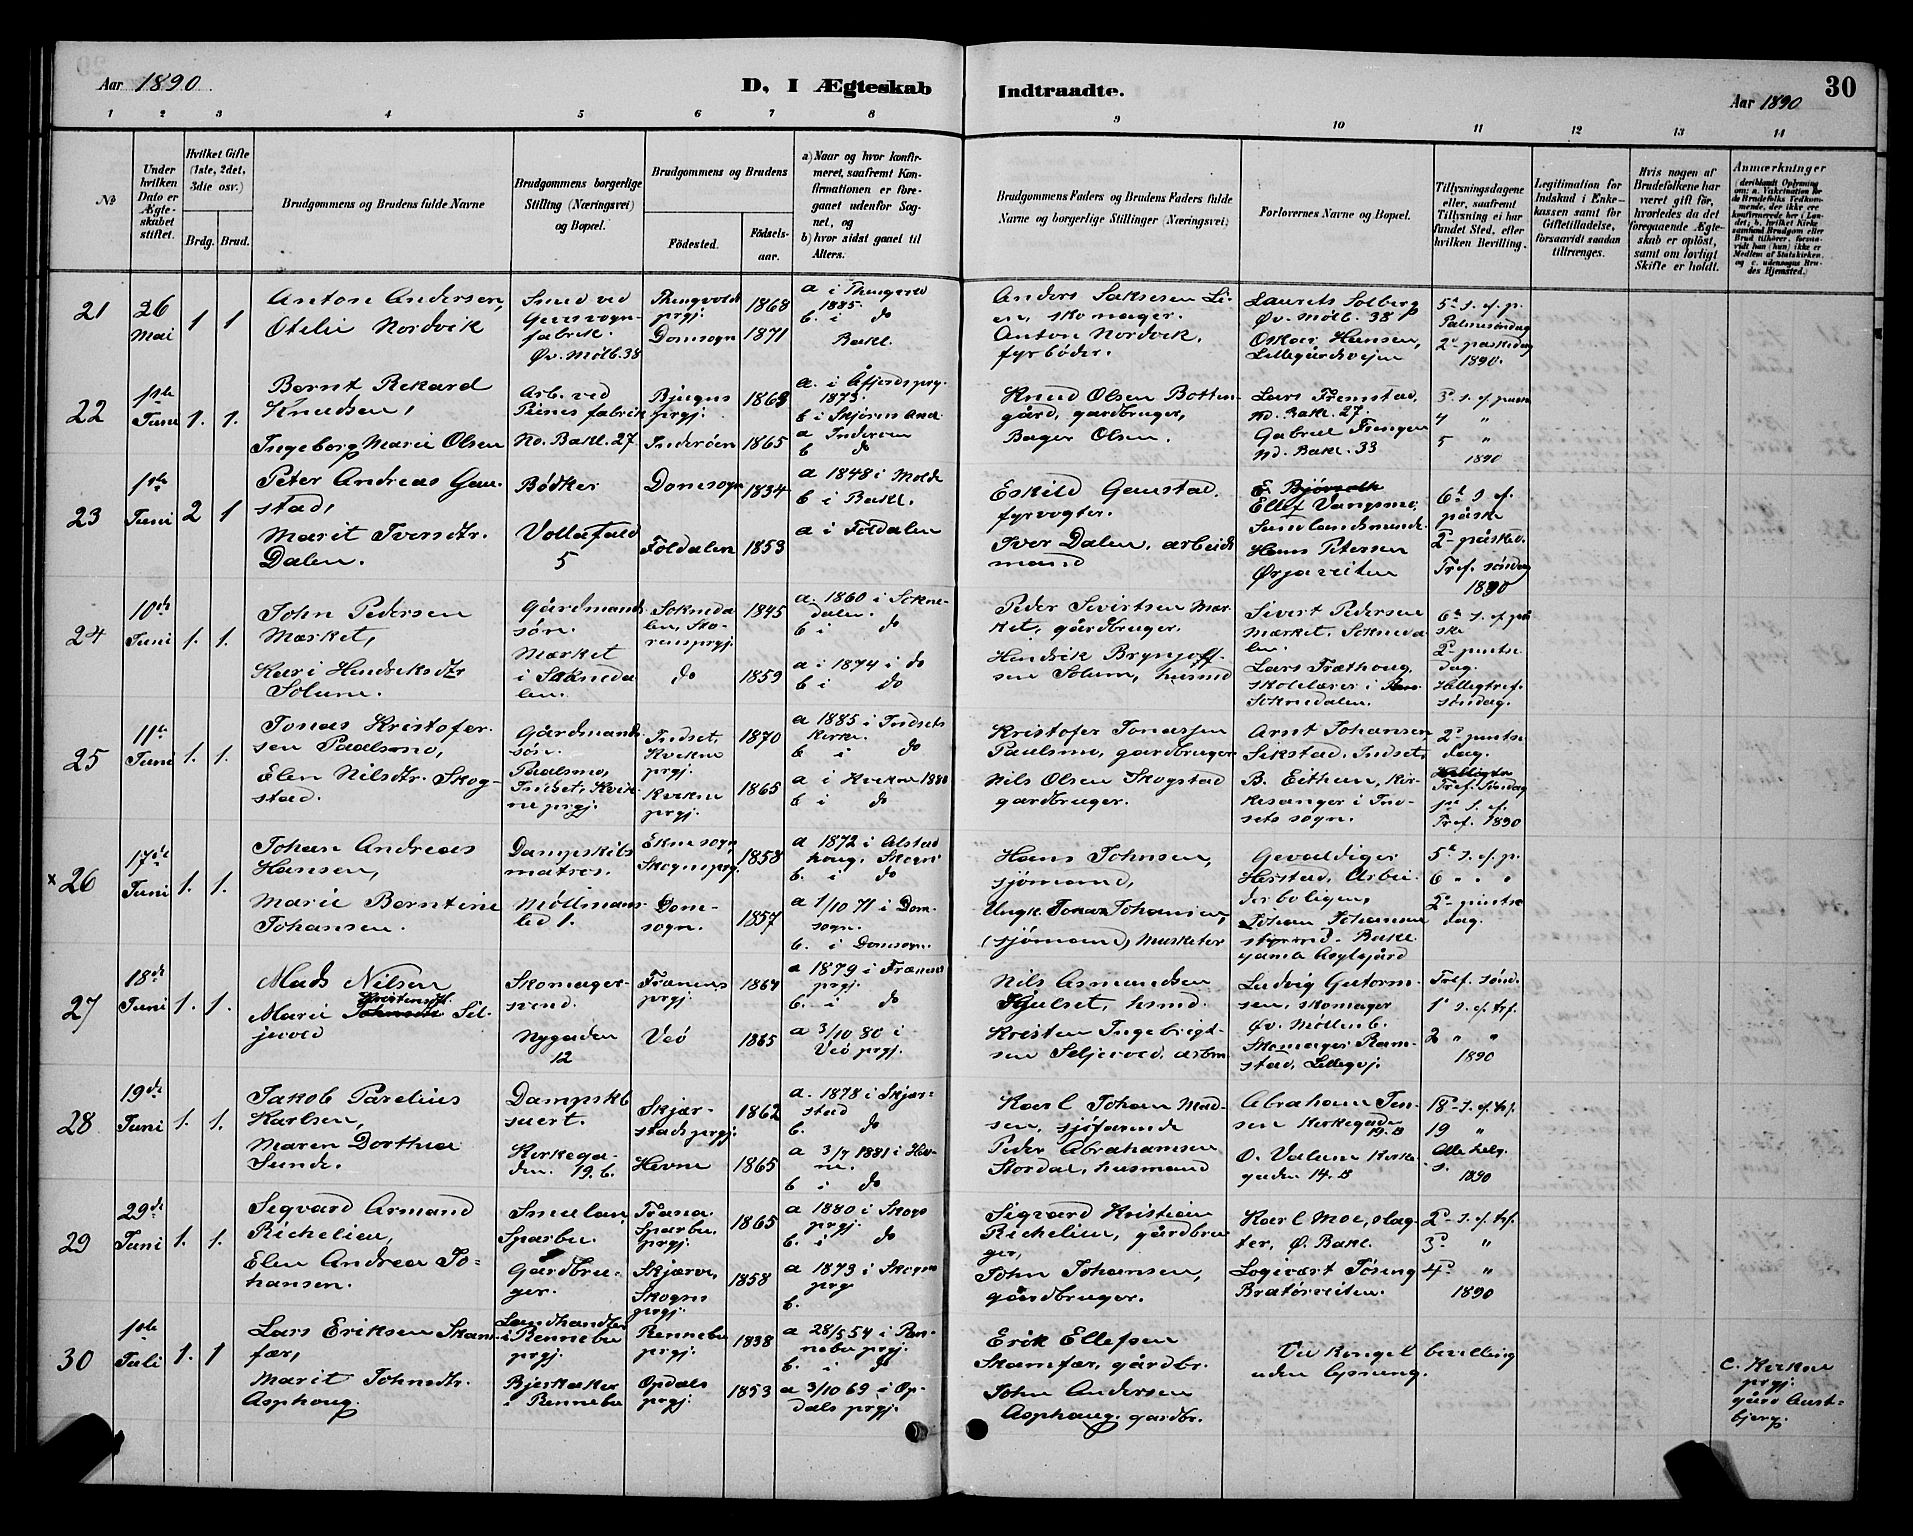 Aar 1890. D. I Ægteskab Indtraadte. Aar 1890 30
1 2 3 4 5 6 7 8 9 10 11 12 13 14
№
Under hvilken Dato er Ægteskabet stiftet.
Hvilket Gifte (1ste, 2det, 3die osv.)
Brdg. Brud.
Brudgommens og Brudens fulde Navne
Brudgommens borgerlige Stilling (Næringsvei) og Bopæl.
Brudgommens og Brudens
Fødested. Fødselsaar.
a) Naar og hvor konfirmeret, saafremt Konfirmationen er foregaaet udenfor Sognet, og
b) hvor sidst gaaet til Alters.
Brudgommens Faders og Brudens Faders fulde Navne og borgerlige Stillinger (Næringsvei)
Forlovernes Navne og Bopæl.
Tillysningsdagene eller, saafremt Tillysning ei har fundet Sted, efter hvilken Bevilling.
Legitimation for Indskud i Enkekassen samt for Giftetilladelse, forsaavidt saadan tiltrænges.
Hvis nogen af Brudefolkene har været gift før, hvorledes da det foregaaende Ægteskab er opløst, samt om lovligt Skifte er holdt.
Anmærkninger
21
26 Mai
1 1
Anton Andersen,
Otelie Nordvik
Smed ved
Geværvogn-
fabrik.
Øv. Mølb. 38
Thingvold
prgj.
Domsogn
1868
1871
a i Thingvold
1885.
b. i do
Bakl.
Anders Saksesen Li-
en, skomager.
Anton Nordvik,
fyrbøder.
Laurits Solberg
Øv. Mølb. 38
Oskar Hansen,
Lillegårdsvejen
5t s. f. p.
Palmesøndag
2d påskedag
1890.
22
1ste Juni
1. 1.
Bernt Rekard
Knudsen,
Ingeborg Marie Olsen
Arb. ved
fabrik
Nd. Bakl. 27
Bjugns
prgj.
Inderøen
1863
1865
a. i Åfjords prg.
1873.
b i
a Inderøen
b do
Knud Olsen Botten-
gård, gardbruger,
Bager Olsen.
Lars Fremstad,
Nd. Bakl. 27.
Gabriel
Nd. Bakl. 33
3d s. f. påske
4 "
5 "
1890
23
1ste Juni
2 1
Peter Andreas Gau-
stad,
Marit Iversdtr.
Dalen.
Bødker
Vollafald
5
Domsogn
Foldalen
1834
1853
a 1848 i Molde
b i Bakl.
a i Foldalen
Eskild Gaustad.
fyrvogter.
Iver Dalen, arbeids
mand
Ellef Vangsmo,
Hans Petersen
Ørjaveiten
6t s. f.
påske
2d påsked.
Tref. søndag
1890
24
10de Juni
1. 1.
John Pedersen
Mærket,
Kari Hendriksdtr
Solum.
Gårdmands
søn.
Mærket
i Sokneda-
len.
Sokneda-
len, Stø-
rens prgj.
do
1845
1859
a. 1860 i Sokne-
dalen.
b i do
a i 1874 i do
b i do
Peder Sivertsen Mær-
ket, gårdbruger.
Hendrik Brynjolf-
sen Solum, husmd
Sivert Pedersen
Mærket. Sokneda-
len.
Lars Træthoug,
skolelærer i
Soknedalen.
6t s. f. på
ske
2d pintse
dag.
Helligtref.
søndag.
25
11te Juni
1. 1.
Jonas Kristofer-
sen Paalsmo,
Elen Nilsdtr. Skog-
stad.
Gårdmands
søn.
Paalsmo,
Indset, Kvik-
ne prgj.
Indset,
Kvikne
prgj.
Kvikne
prgj.
1870
1865
a 1885 i Indsets
kirke.
b i do
a i Kvikne 1880
b i do
Kristofer Jonassen
Paulsmo, gardbruger
Nils Olsen Skogstad
gardbruger.
Arnt Johansen,
Sikstad, Indset
B. Eithun, kir-
kesanger i Ind-
sets sogn.
2d pintse
dag.
Tref. Søndag
1ste s. ef.
Tref. 1890
x 26
17de Juni
1. 1.
Johan Andreas
Hansen,
Marie Berntine
Johansen.
Dampskibs
matros.
Møllmans-
led 1.
Ekne sogn
Skogn prg.
Dom-
sogn.
1858
1857
a 1872 i Alstad
houg, Skogn
b. i do
a 1/10 71 i Dom-
sogn.
b. i Domsogn.
Hans Johnsen,
sjømand,
Ungk. Johan Johansen,
(sjømand), Musketer
Gevaldiger
Herstad, Arbei-
derboligen,
Johan Johansen
styrmd. Bakl.
5t s. f. p.
6 " " "
2d pintse
dag.
27
18de Juni
1. 1.
Mads Nilsen
Marie Kristensdt. Sil-
jevod
Skomager-
svend.
Nygaden
12
Frænens
prgj.
Veø
1864
1865
a 1879 i Frænens
prgj.
b. i do
a 3/10 80 i
Veø prgj.
Nils Asmundsen
Hjulset, husmd.
Kristen Ingebrigt-
sen Seljevod, arbm
Ludvig Gutorm-
sen, skomager
Øv. Møllenb.
Skomager Ram-
stad, Lillegvj.
Tref. sønd.
1' s. f. trf.
2 " "
1890
28
19de Juni
1. 1.
Jakob Parelius
Karlsen,
Maren Dorthea
Sunde.
Dampskb
Kirkega-
den. 19. b.
Skjær-
stads prgj.
Hevne
1862
1865
a. 1878 i Skjær-
stad
b. do
a 3/7 1881 i Hev-
ne.
b i do
Karl Johan Mad-
sen, sjøfarende
Peder Abrahamsen
Stordal, husmand
Abraham Jen-
sen Kirkegade
19. B
O. Valum Kirke-
gaden 14. B
18d s. ef. trf.
19 "
Alle helg.
s.
1890
29
29de Juni
1. 1.
Segvard Armand
Richelien,
Elen Andrea Jo-
hansen.
Smulan,
Sparbu.
Gårdbru-
ger.
Sparbu.
prgj.
Skjærve,
Skogns
prgj.
1865
1858
a 1880 i Skogn
prgj.
b. i do
a 1873 i Skogn
prg
b.
Segvard Kristian
Richelien, gårdbru
ger,
John Johansen,
gårdbruger.
Karl Moe, slag-
ter, Ø. Bakl.
Bratørveiten.
2d s. ef. trf.
3d "
4d "
1890
30
1ste Juli
1. 1
Lars Eriksen Skam-
fær,
Marit Johnsdtr.
Asphoug.
Landhandler
i Rennebu
prgj.
Bjerkaker
i Rennebu
Rennebu
prgj.
Opdals
prgj.
1838
1853
a 28/5 54 i Ren-
nebu prgj.
b. i do
a 3/10 69 i Op-
dals prgj.
Erik Ellefsen
Skamfær, gårdbr.
John Andersen
Asphoug, gardbr.
Ved Kongel. bevilling
uden lysning.
C. Kvikne
prgj.
gård Aust-
bjerg.